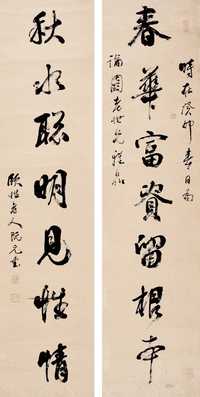 時在癸卯春日
春華富資留根本
園老世兄
秋水聰明見性情
頤性老人阮元書